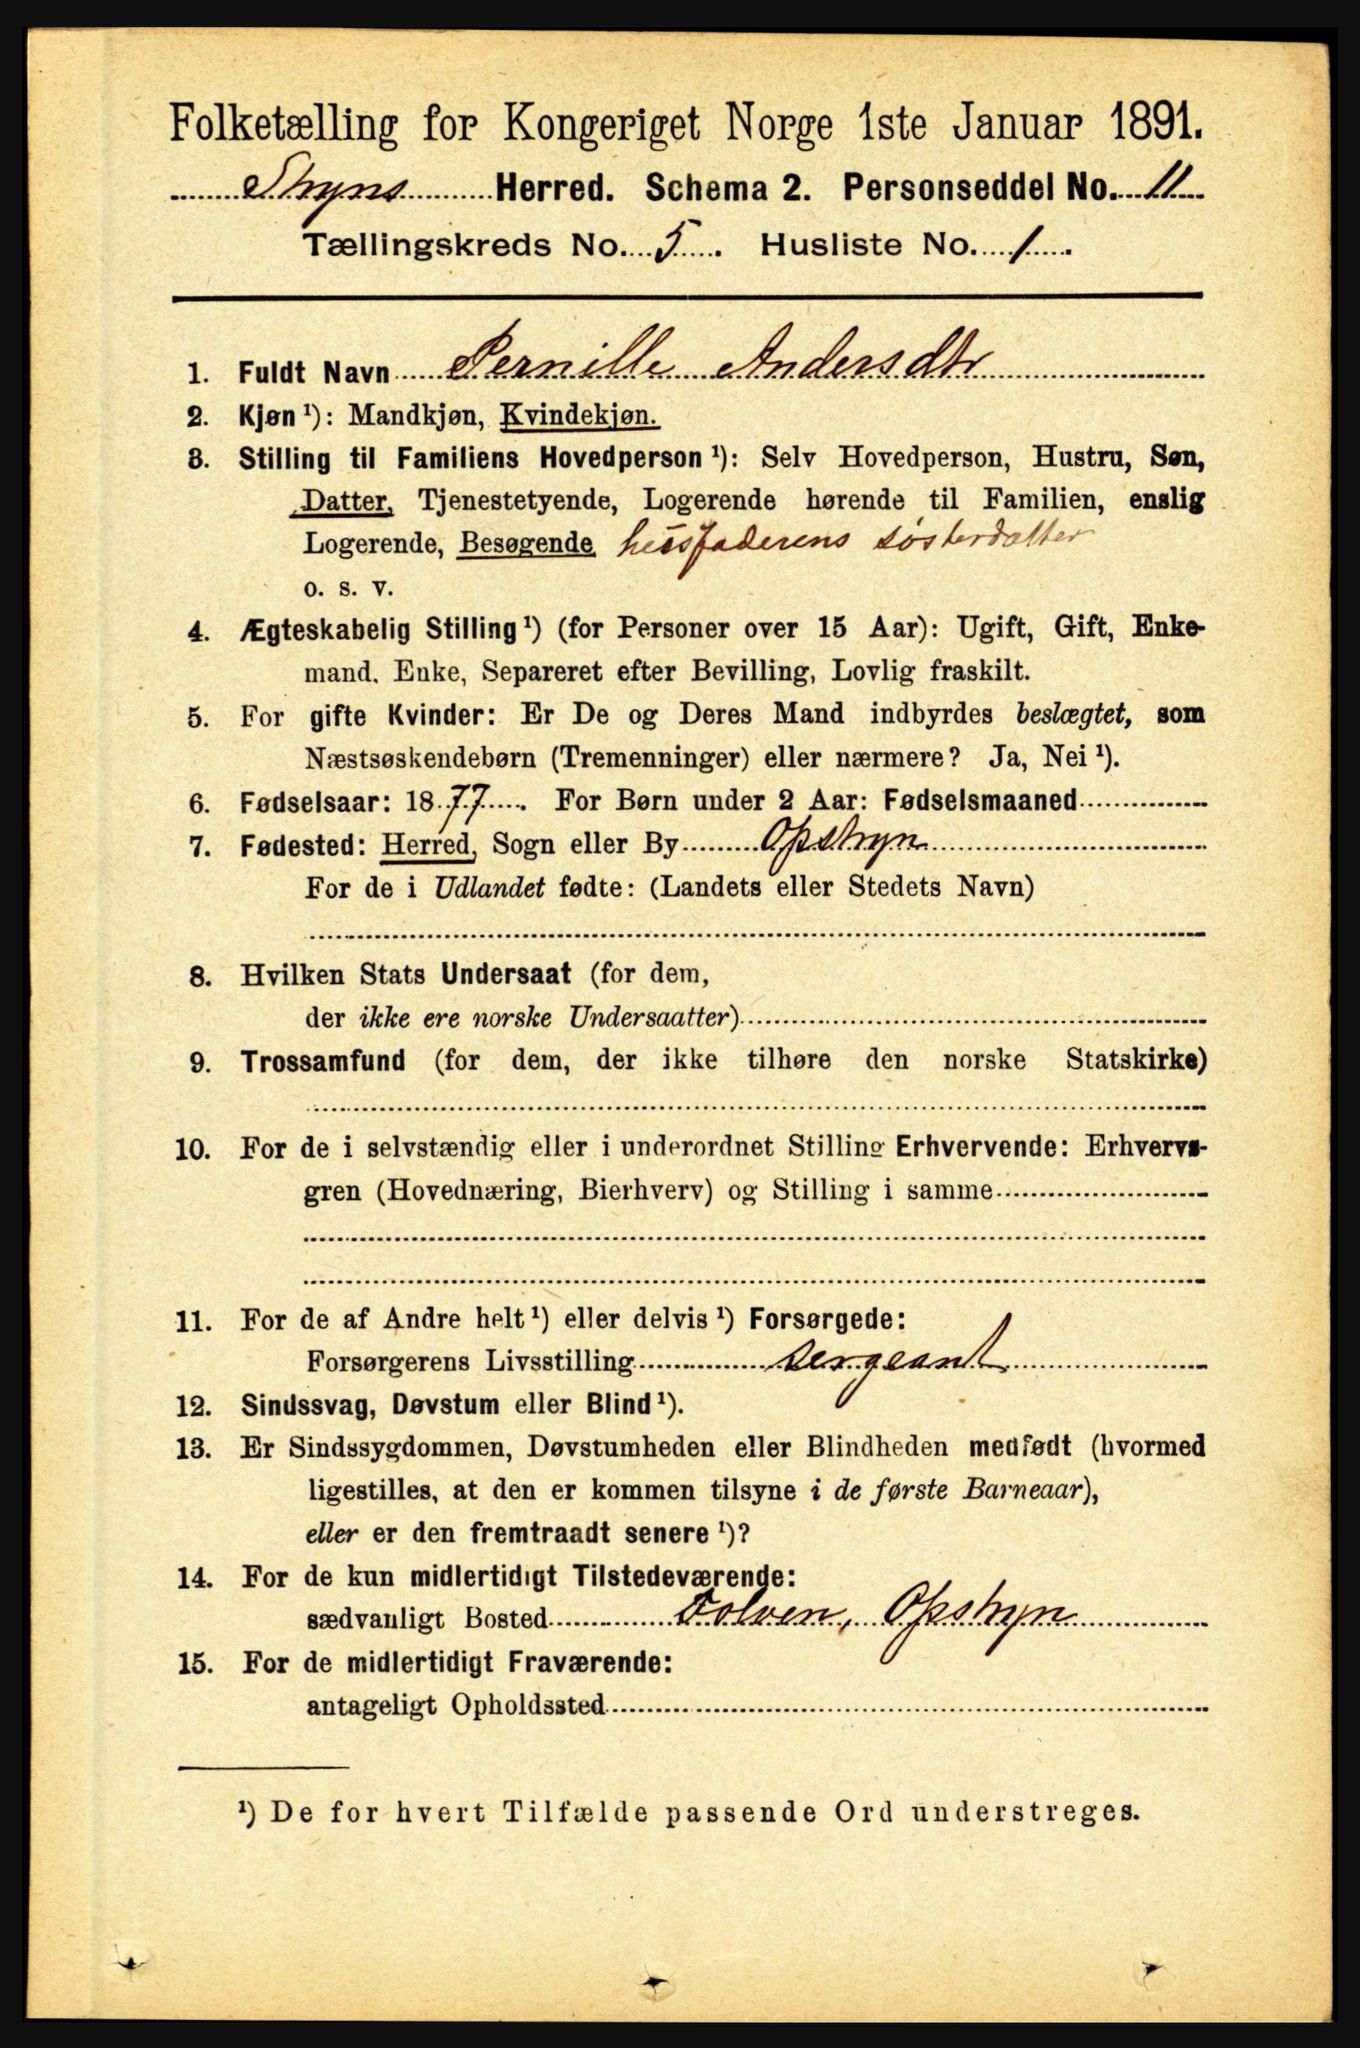 Folketælling for Kongeriget Norge 1ste Januar 1891.
Stryns Herred. Schema 2. Personseddel No. 11
Tællingskreds No. 5. Husliste No. 1.
1. Fuldt Navn Pernille Andersdtr
2. Kjøn ¹): Mandkjøn, Kvindekjøn.
3. Stilling til Familiens Hovedperson ¹): Selv Hovedperson, Hustru, Søn,
Datter, Tjenestetyende, Logerende hørende til Familien, enslig
Logerende, Besøgende husfaderens søsterdatter
o. s. v.
4. Ægteskabelig Stilling ¹) (for Personer over 15 Aar): Ugift, Gift, Enke-
mand, Enke, Separeret efter Bevilling, Lovlig fraskilt.
5. For gifte Kvinder: Er De og Deres Mand indbyrdes beslægtet, som
Næstsøskendebørn (Tremenninger) eller nærmere? Ja, Nei ¹).
6. Fødselsaar: 1877. For Børn under 2 Aar: Fødselsmaaned
7. Fødested: Herred, Sogn eller By Opstryn
For de i Udlandet fødte: (Landets eller Stedets Navn)
8. Hvilken Stats Undersaat (for dem,
der ikke ere norske Undersaatter)
9. Trossamfund (for dem, der ikke tilhøre den norske Statskirke)
10. For de i selvstændig eller i underordnet Stilling Erhvervende: Erhvervs-
gren (Hovednæring, Bierhverv) og Stilling i samme
11. For de af Andre helt ¹) eller delvis ¹) Forsørgede:
Forsørgerens Livsstilling sergeant
12. Sindssvag, Døvstum eller Blind ¹).
13. Er Sindssygdommen, Døvstumheden eller Blindheden medfødt (hvormed
ligestilles, at den er kommen tilsyne i de første Barneaar),
eller er den fremtraadt senere ¹)?
14. For de kun midlertidigt Tilstedeværende:
sædvanligt Bosted Folven, Opstryn
15. For de midlertidigt Fraværende:
antageligt Opholdssted
¹) De for hvert Tilfælde passende Ord understreges.